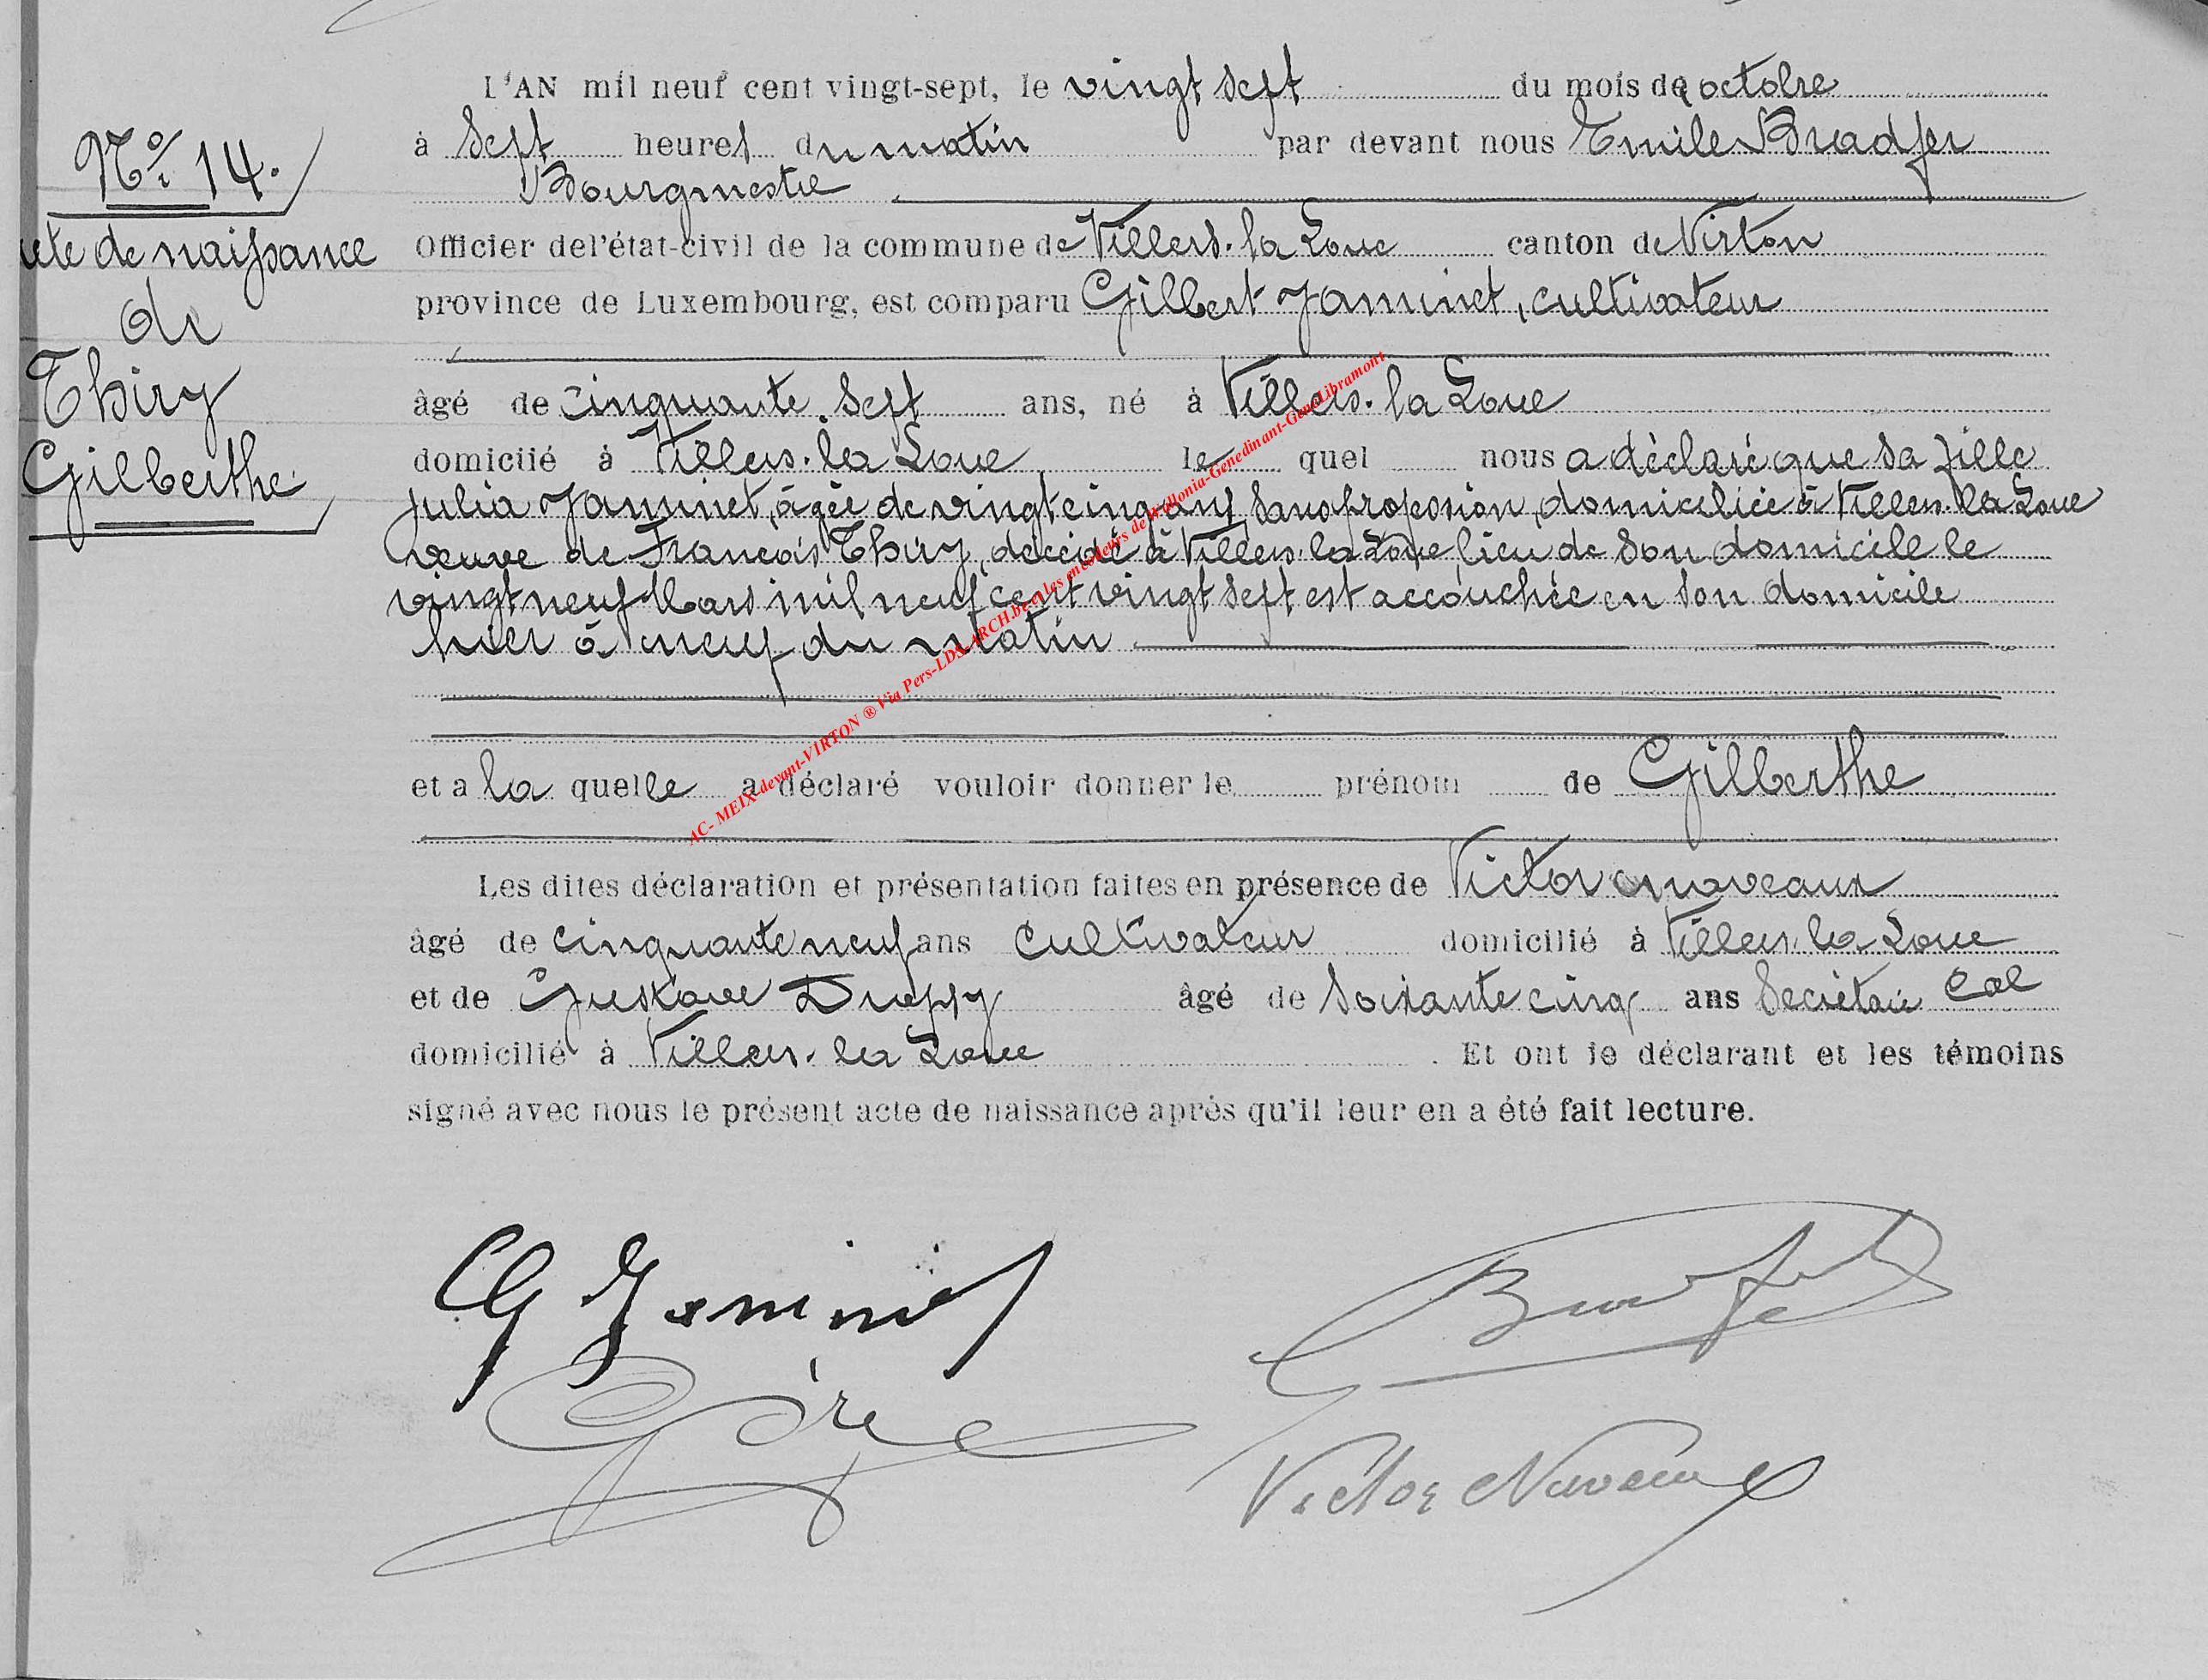 L'AN mil neuf cent vingt-sept, le vingt sept du mois de octobre
à sept heures du matin par devant nous Emile Bradfer
Bourgmestre
Officier de l'état-civil de la commune de Villers-la-Loue canton de Virton
province de Luxembourg, est comparu Gilbert Jaminet, cultivateur
âgé de cinquante-sept ans, né à Villers-la Loue
domicilié à Villers-la Loue le quel nous a déclaré que sa fille
Julia Jaminet, âgée de vingt cinq ans sans profession, domiciliée à Villers-la Loue
veuve de François Thiry, décédé à Villers-la Loue, lieu de son domicile le
vingt neuf Mars mil neuf cent vingt sept est accouchée en son domicile
hier à neuf du matin
et a la quelle a déclaré vouloir donner le prénom de Gilberthe
Les dites déclaration et présentation faites en présence de Victor Naveaux
âgé de cinquante neuf ans cultivateur domicilié à Villers-la Loue
et de Gustave âgé de soixante cinq ans Secrétaire Cal
domicilié à Villers-la Loue . Et ont le déclarant et les témoins
signé avec nous le présent acte de naissance après qu'il leur en a été fait lecture.
No 14.
acte de naissance
de
Thiry
Gilberthe
AC- MEIX-devant-VIRTON ® Via Pers-LDS-ARCH.be et les encodeurs de Wallonia-Genedinant-GeneLibramont
G Jaminet
Bradfer
Victor Naveaux